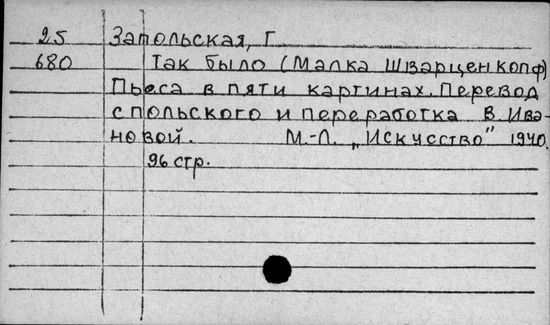 25 Запольская, Г.
680 Так было (Малка Шварценкопф)
Пьеса в пяти картинах. Перевод
с польского и переработка В. Ива-
новой. М.-Л. „Искусство" 1940.
96 стр.